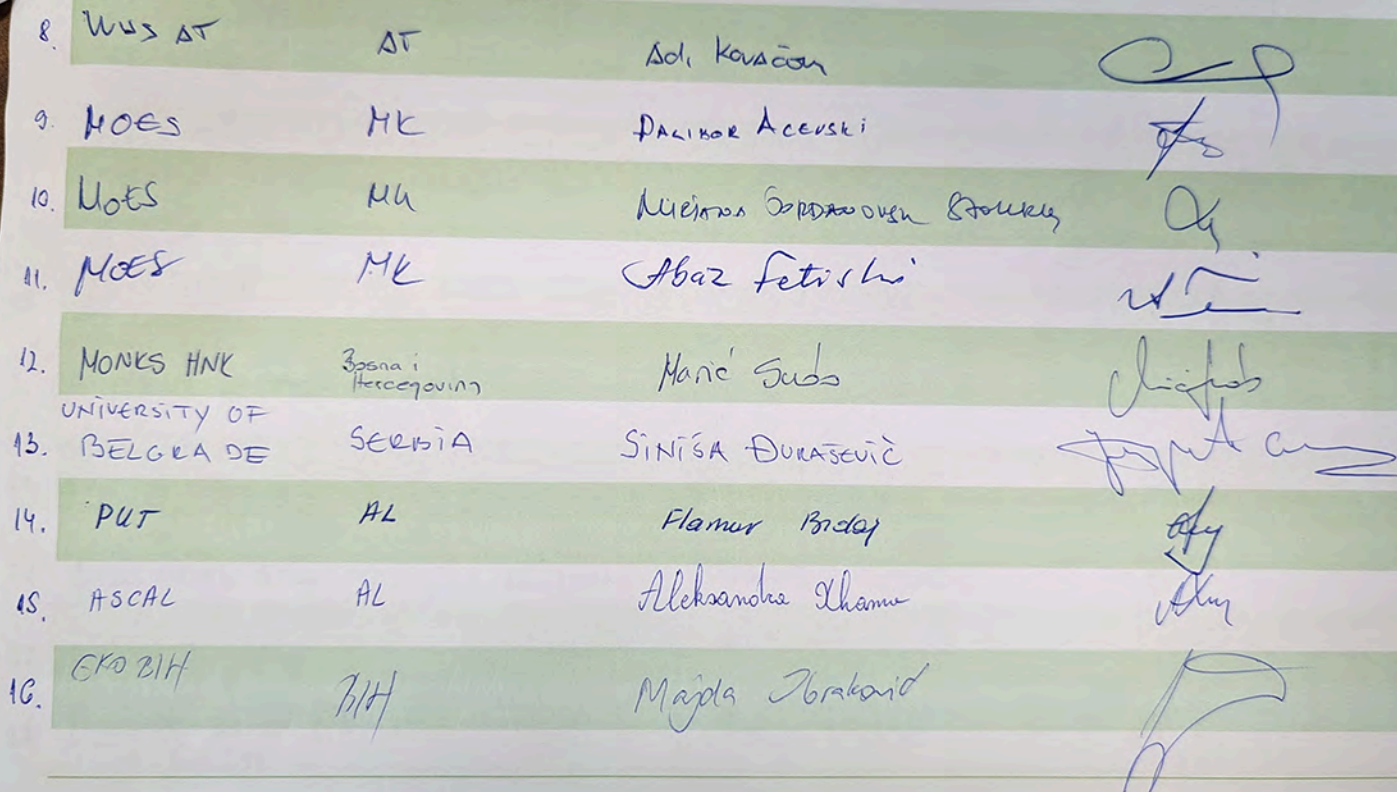 8. WUS AT AT Adi Kovačević
9. MOES MK DALIBOR ACEVSKI
10. MOES MK
11. MOES MK Abaz Fetishi
12. MONKS HNK Bosna i
Hercegovina Marić Sudo
13. UNIVERSITY OF
BELGRADE SERBIA SINIŠA ĐURAŠEVIĆ
14. PUT AL Flamur Bidaj
15. ASCAL AL Aleksandra Xhamo
16. EKO BIH BIH Majda Ibraković